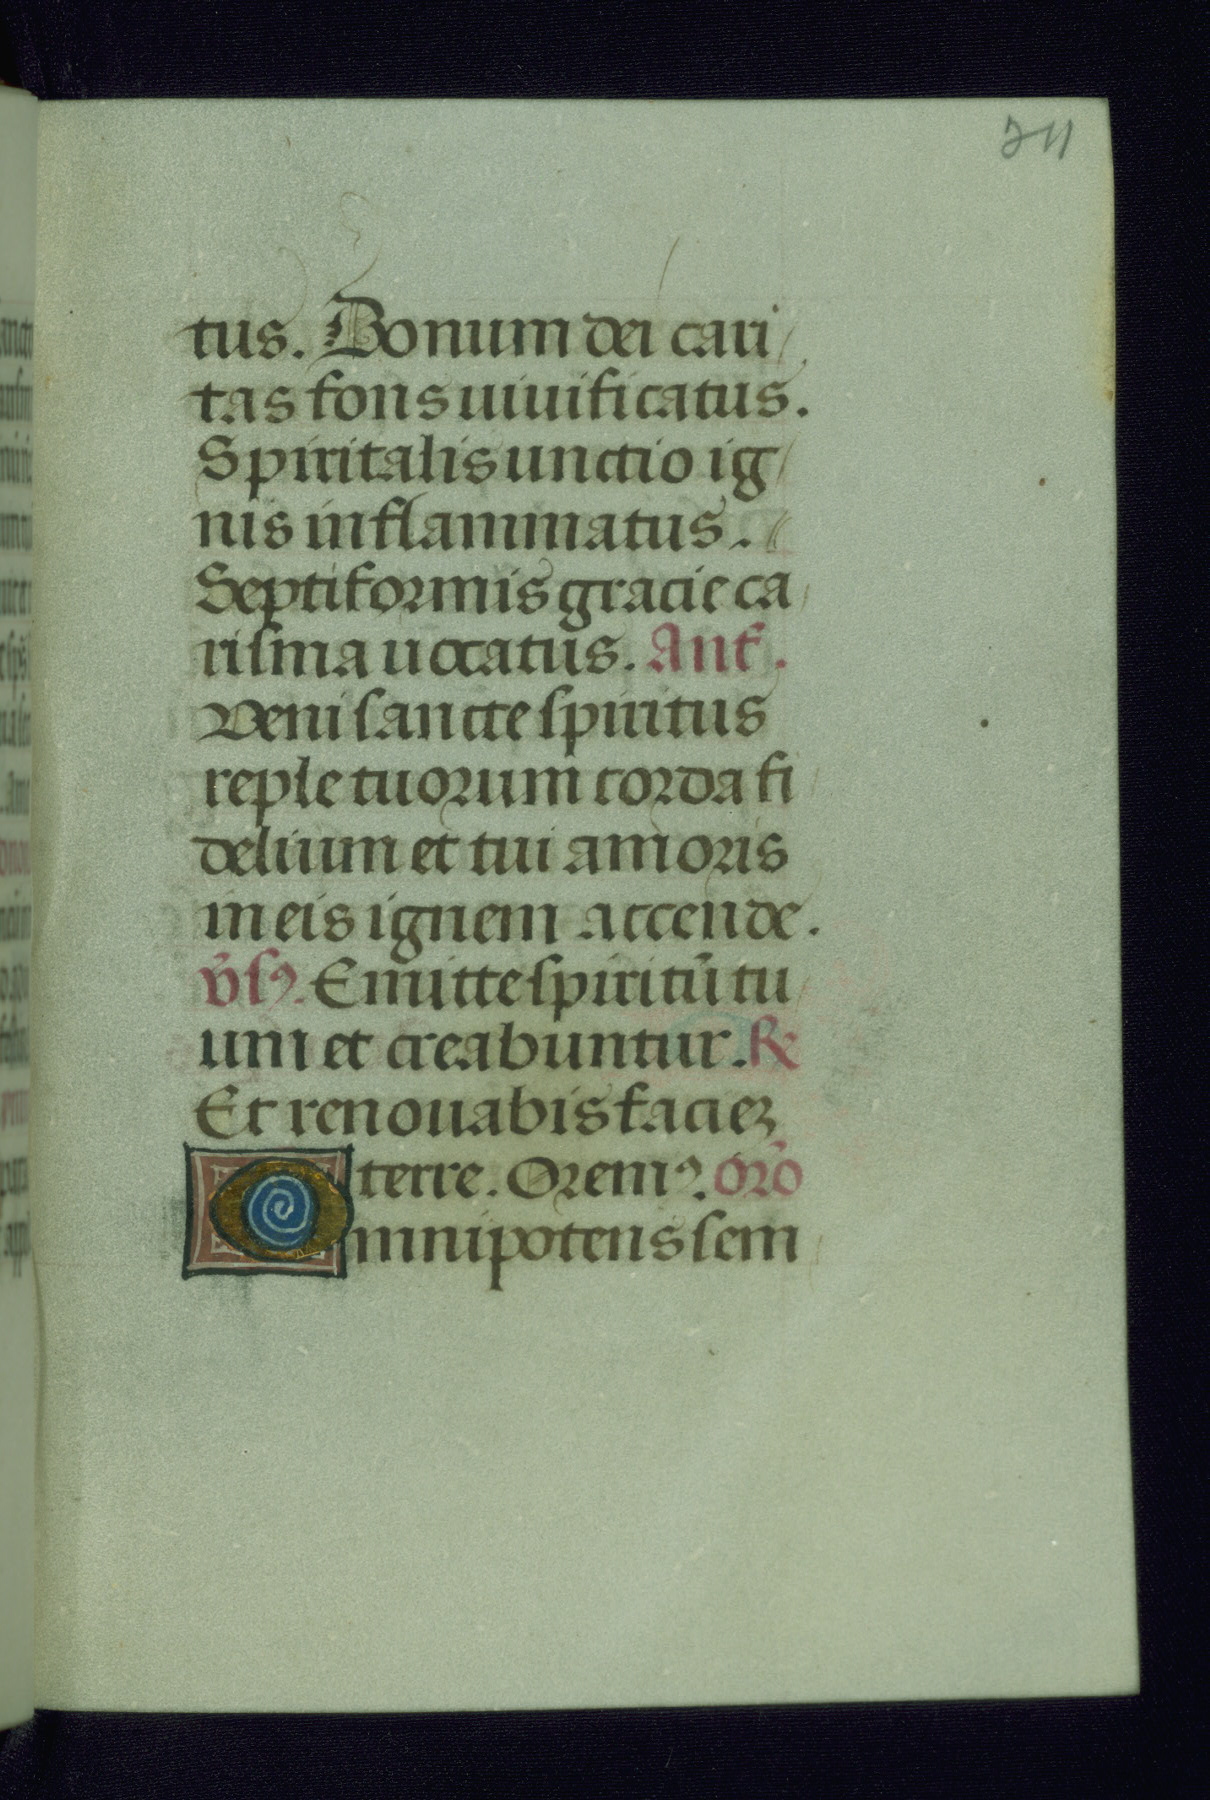 tus. Donum dei cari
tas fons uiuificatus.
Spiritalis unctio ig
nis inflammatus.
Septiformis gracie ca
risma uocatus. Ant.
Veni sancte spiritus
reple tuorum corda fi
delium et tui amoris
in eis ignem accende.
v̄sꝰ. Emitte spiritū tu
um et creabuntur. ℟
Et renouabis faciez
terre. Oremꝰ. orō
Omnipotens sem